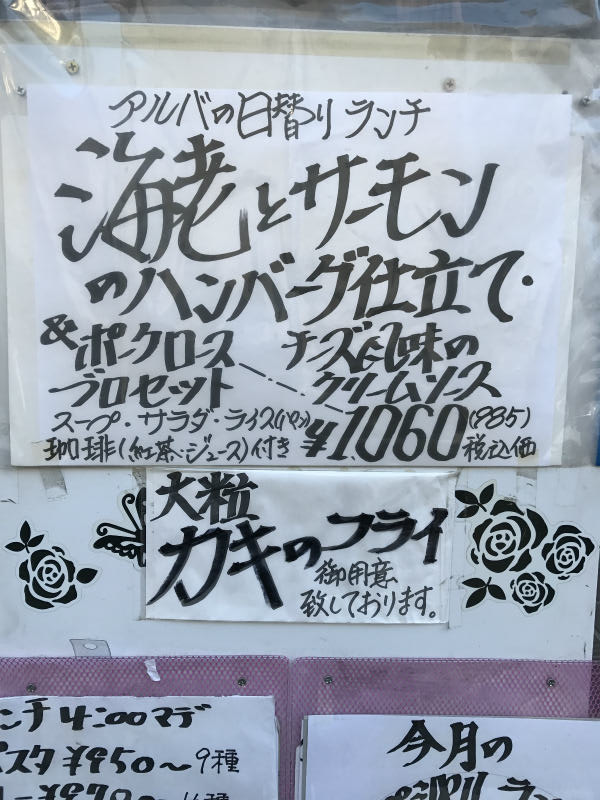 アルバの日替りランチ
海老とサーモン
のハンバーグ仕立て・
&ポークロース チーズ風味の
ブロセット クリームソース
スープ・サラダ・ライス(パン)
珈琲(紅茶・ジュース)付き ¥1.060(985)税込価
大粒
カキのフライ
御用意
致しております。
ンチ4:00マデ
パスタ¥950〜9種
ー¥970〜
今月の